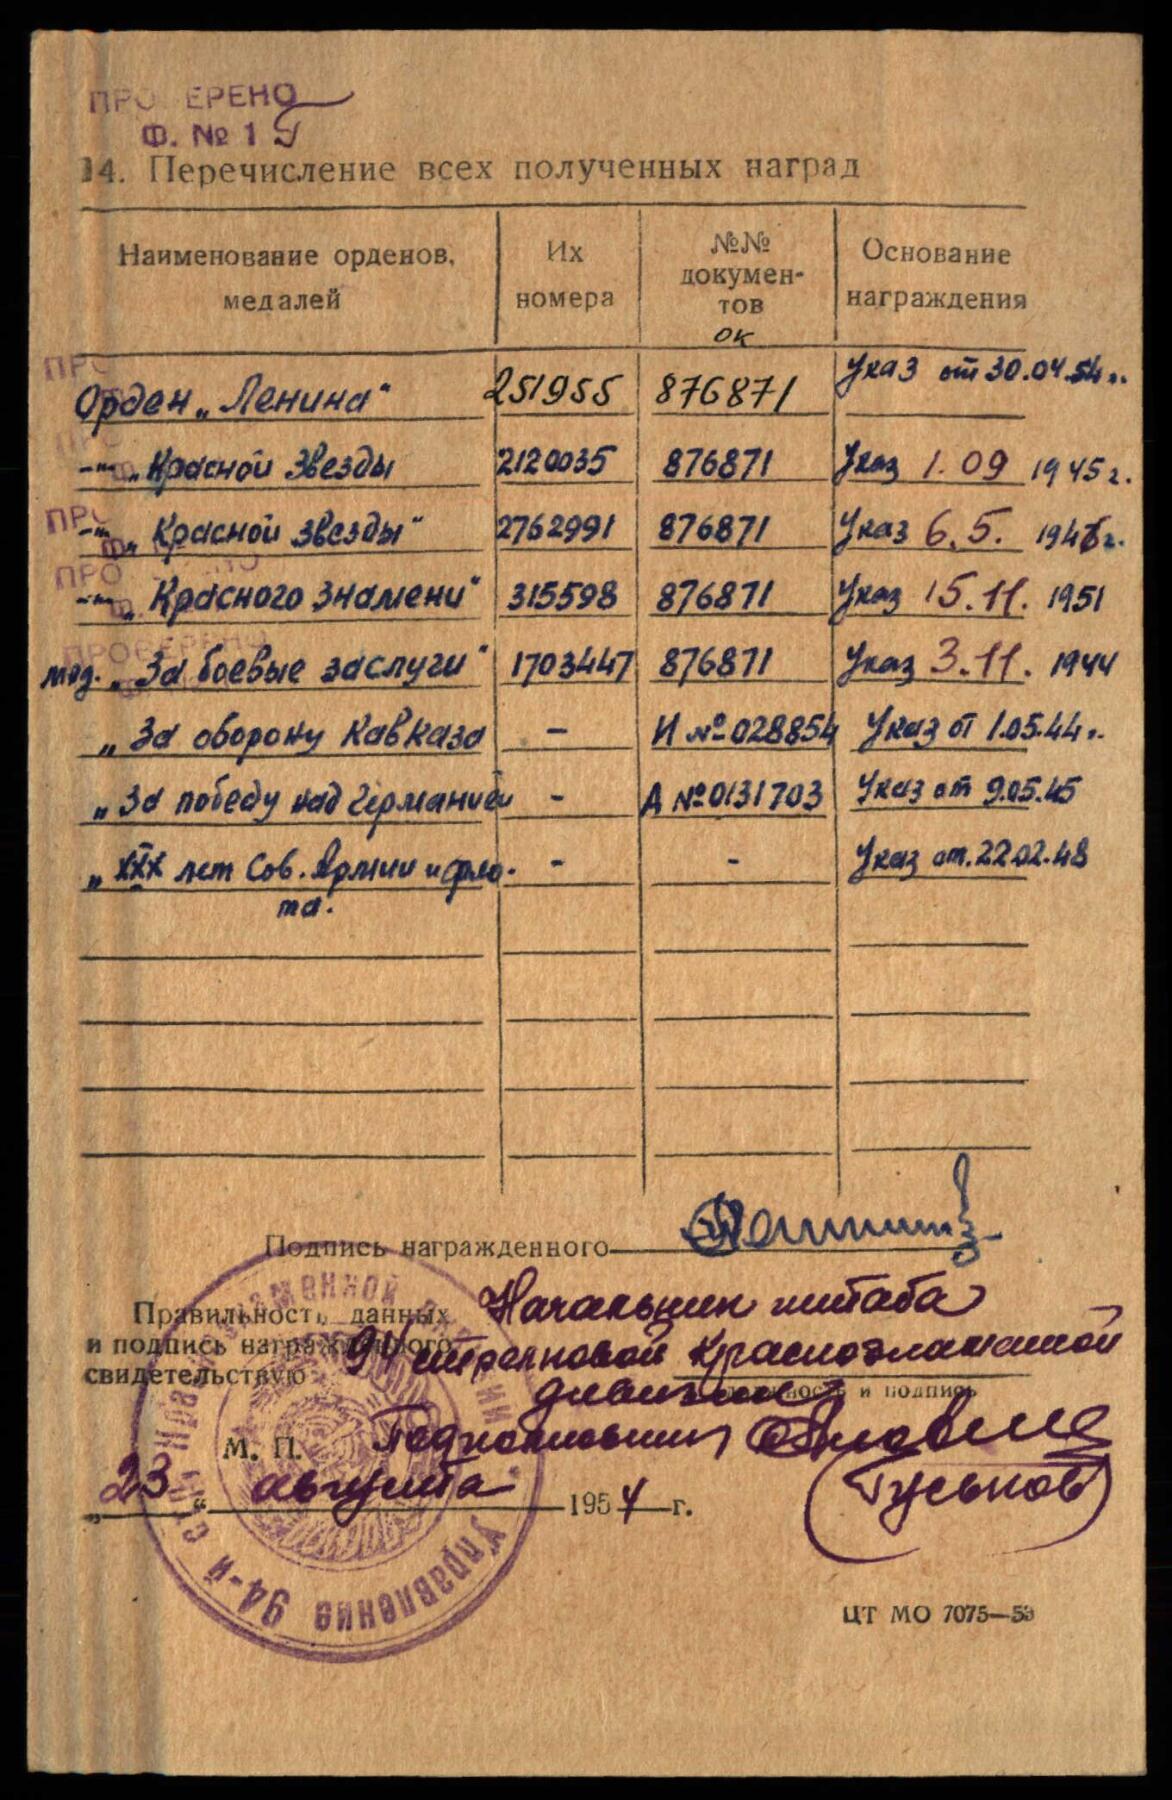 ПРОВЕРЕНО
Ф. № 1
14. Перечисление всех полученных наград
Наименование орденов, медалей | Их номера | №№ документов | Основание награждения
ок
Орден „Ленина" 251955 876871 Указ от 30.04.54г.
-"- „Красной Звезды 2120035 876871 Указ 1.09 1945г.
-"- „Красной Звезды" 2762991 876871 Указ 6.5. 1946г.
-"- „Красного Знамени" 315598 876871 Указ 15.11. 1951
мед. „За боевые заслуги" 1703447 876871 Указ 3.11. 1944
„За оборону Кавказа - И №028854 Указ от 1.05.44г.
„За победу над Германией - А №0131703 Указ от 9.05.45
„XXX лет Сов. Армии и фло- - - Указ от.22.02.48
та.
Подпись награжденного
Правильность данных
и подпись награжденного
свидетельствую
Начальник штаба
94 стрелковой Краснознаменной
дивизии
должность и подпись
М. П. Подполковник
(Гуськов)
„23" августа 1954 г.
Управление 94-й
ЦТ МО 7075—53